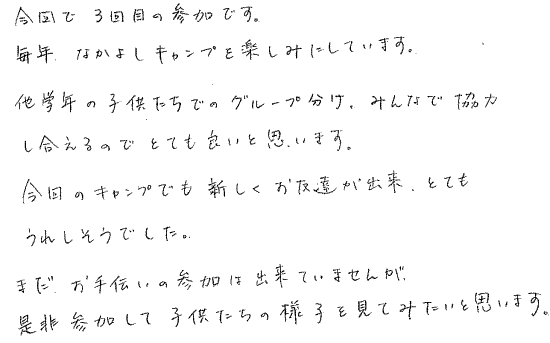 今回で 3回目の参加です。
毎年、なかよしキャンプを楽しみにしています。
他学年の子供たちでのグループ分け、みんなで協力
し合えるのでとても良いと思います。
今回のキャンプでも新しくお友達が出来、とても
うれしそうでした。
まだ、お手伝いの参加は出来ていませんが、
是非参加して子供たちの様子を見てみたいと思います。